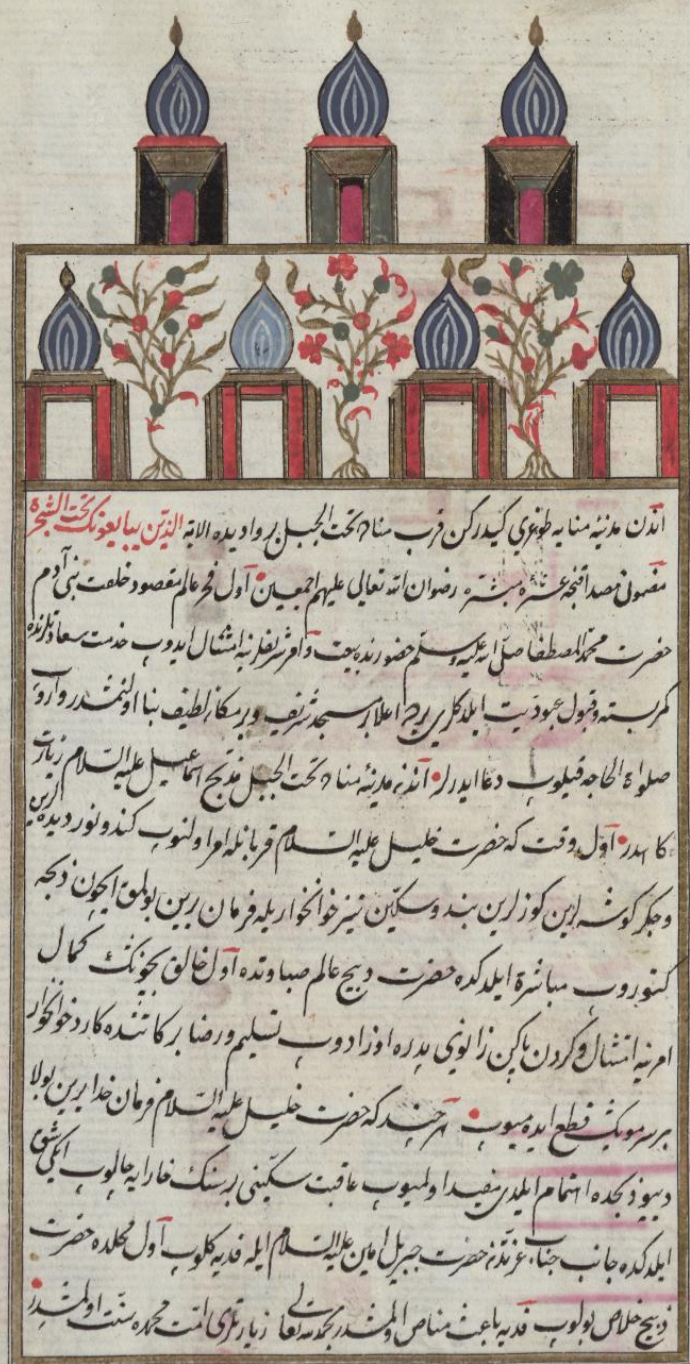 اندن مدینۀ منایه طوغری کیدرکن قرب مناده تحت الجبل بر وادیده الایه الذین یبایعونک تحت الشجرة
مضمونی مصداقنجه عشرۀ مبشره رضوان الله تعالی علیهم اجمعین اول فخر عالم مقصود خلقت بنی آدم
حضرت محمد المصطفا صلی الله علیه وسلم حضورنده بیعت وامر شریفلرینه امتثال ایدوب خدمت سعادتلرنده
کمر بسته و قبول عبودیت ایلدکلری یرده اعلا بر مسجد شریف و بر مکان لطیف بنا اولنمشدر واروب
صلواة الحاجه قیلوب دعا ایدرلر اندنه مدینۀ مناده تحت الجبل مذبح اسماعیل علیه السلام زیارت
کاهیدر اول وقت که حضرت خلیل علیه السلام قربانله امر اولنوب کندو نور دیده لرین
وجکر کوشه لرین کوزلرین بند وسکین تیز خوانخوار یله فرمان یرین بولمق ایچون ذبحه
کتوروب مباشرة ایلدکده حضرت ذبیح عالم صباوتده اول خالق بیچونک کمال
امرینه امتثال و کردن پاکن زانوی پدره اوزادوب تسلیم ورضا بر کاتنده کارد خوانخوار
بر سر مویک قطع ایده میوب هر چند که حضرت خلیل علیه السلام فرمان خدا یرین بولا
دیو ذبحده اهتمام ایلدی مفید اولمیوب عاقبت سکینی بر سنک خارایه چالوب ایکی شق
ایلدکده جانب جناب عزتدنه حضرت جبریل امین علیه السلام ایله فدیه کلوب اول محلده حضرت
ذبیح خلاص بولوب فدیه باعث مناص اولمشدر بحمد الله تعالی زیارتلری امت محمده سنت اولمشدر